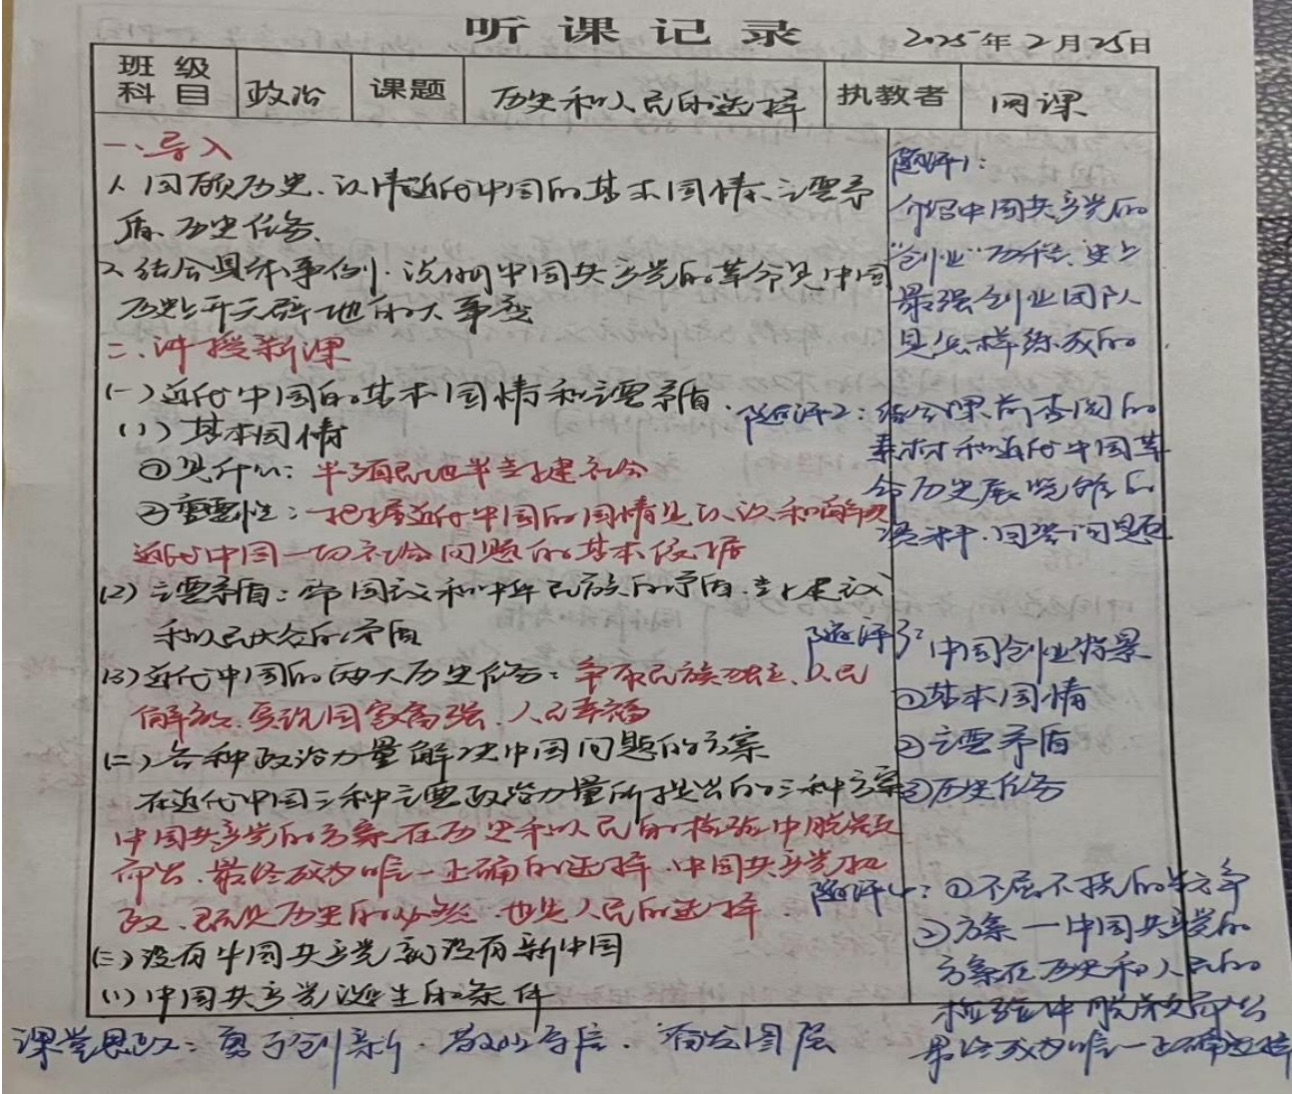 听课记录
2025年2月25日
班级科目 政治 课题 历史和人民的选择 执教者 网课
一、导入
1、回顾历史、认清近代中国的基本国情、主要矛
盾、历史任务
2、结合具体事例、说明中国共产党的革命是中国
历史上开天辟地的大事变
二、讲授新课
(一)近代中国的基本国情和主要矛盾
(1)基本国情
①是什么：半殖民地半封建社会
②重要性：把握近代中国的国情是认识和解决
近代中国一切社会问题的基本依据
(2)主要矛盾：帝国主义和中华民族的矛盾、封建主义
和人民大众的矛盾
(3)近代中国的两大历史任务：争取民族独立、人民
解放、实现国家富强、人民幸福
(二)各种政治力量解决中国问题的方案
在近代中国三种主要政治力量所提出的三种方案
中国共产党的方案在历史和人民的检验中脱颖
而出、最终成为唯一正确的选择、中国共产党执
政、既是历史的必然、也是人民的选择
(三)没有中国共产党就没有新中国
(1)中国共产党诞生的条件
随评1：
介绍中国共产党的
"创业"历程、史上
最强创业团队
是怎样练成的
随评2：结合课前查阅的
素材和近代中国革
命历史展览馆的
资料、回答问题
随评3：
中国创业背景
①基本国情
②主要矛盾
③历史任务
随评4：①不屈不挠的斗争
②方案一中国共产党的
方案在历史和人民的
检验中脱颖而出
最终成为唯一正确选择
课堂思政：勇于创新、敢为